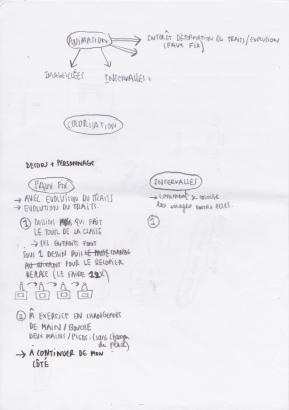 ANIMATION
INTERÊT DÉFORMATION DU TRAITS/EVOLUTION
(FAUX FIX)
IMAGE CLÉES
INTERVALLES
COLORISATION
DECORS + PERSONNAGE
FAUX FIX
→ AVEC EVOLUTION DU TRAITS
→ EVOLUTION DU TRAITS.
① DESSINS QUI FAIT
LE TOUR DE LA CLASSE
→ LES ENFANTS FONT
TOUS 1 DESSIN PUIS CHANGE
POUR LE RECOPIER
(LE FAIRE 12X)
② EXERCICE EN CHANGEANT
DE MAIN / BOUCHE
DEUX MAINS / PIEDS (sans changer
de place)
→ À CONTINUER DE MON
CÔTÉ
INTERVALLES
→ COMMENT SE
les images entre elles.
①